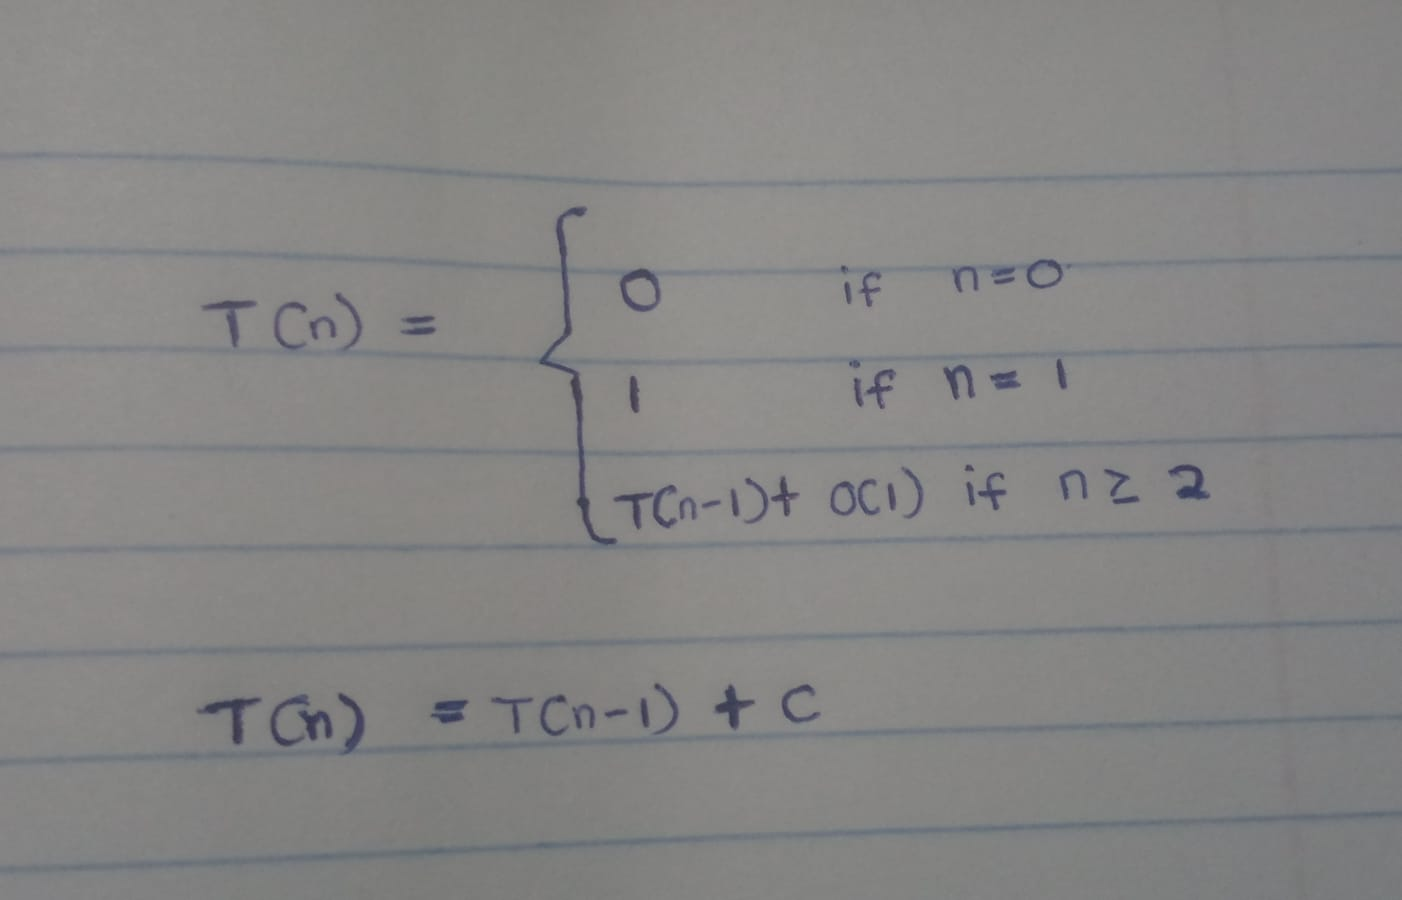 T(n) = { 0 if n=0
1 if n=1
T(n-1)+ O(1) if n≥2
T(n) = T(n-1) + C